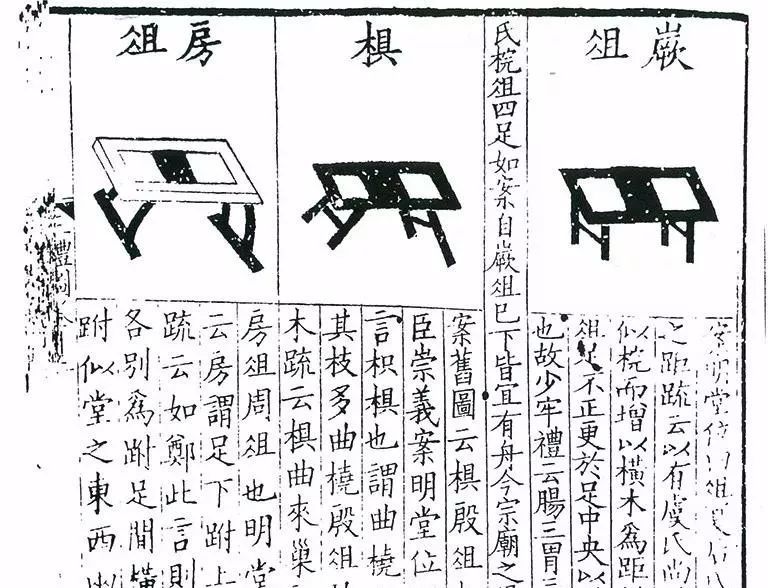 嶡俎
案明堂位曰俎夏后氏
之距疏云以有虞氏尚
似梡而增以橫木爲距
俎足不正更於足中央以
也故少牢禮云腸三胃三
氏梡俎四足如案自嶡俎已下皆宜有舟今宗廟之
椇
案舊圖云椇殷俎
臣崇義案明堂位
言枳椇也謂曲橈
其枝多曲橈殷俎
木疏云椇曲來巢
房俎
房俎周俎也明堂
云房謂足下跗上
疏云如鄭此言則
各別爲跗足間橫
跗似堂之東西